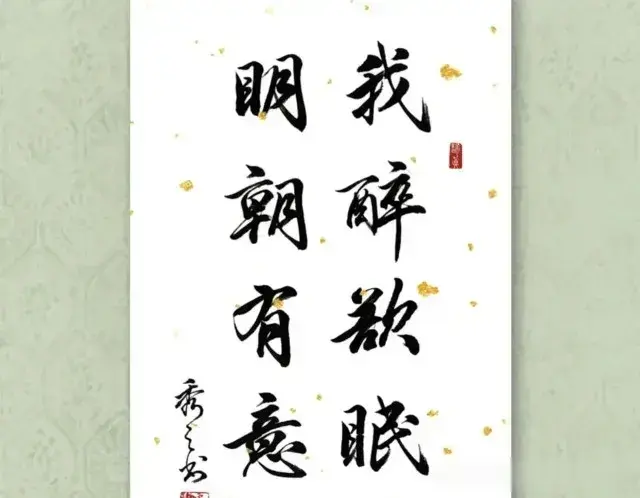 我醉欲眠
明朝有意
秀之书